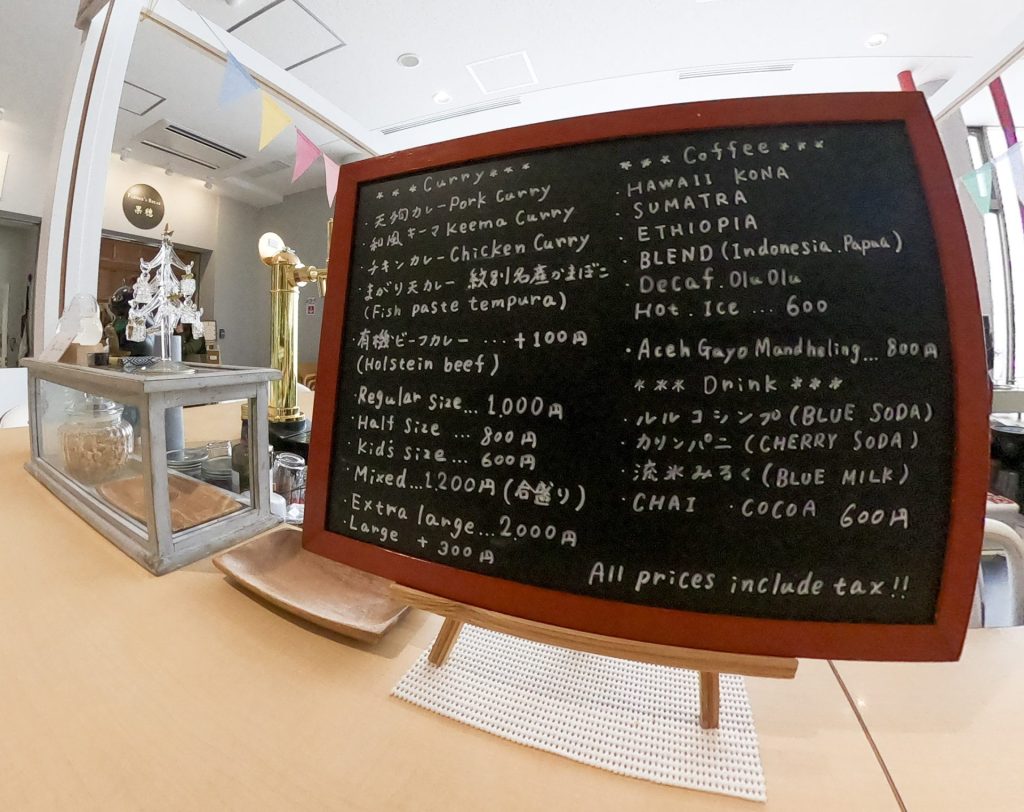 果穂
* * * Curry * * *
・天狗カレー Pork Curry
・和風キーマ Keema Curry
・チキンカレー Chicken Curry
・まがり天カレー 紋別名産かまぼこ
(Fish paste tempura)
・有機ビーフカレー ... +100円
(Holstein beef)
・Regular size... 1,000円
・Half size ... 800円
・Kid's size... 600円
・Mixed...1,200円 (合盛り)
・Extra large...2,000円
・Large +300円
* * * Coffee * * *
・HAWAII KONA
・SUMATRA
・ETHIOPIA
・BLEND (Indonesia.Papua)
・Decaf. Olu Olu
Hot . Ice ... 600
・Aceh Gayo Mandheling... 800円
* * * Drink * * *
・ルルコシンプ (BLUE SODA)
・カリンパニ (CHERRY SODA)
・流氷みるく (BLUE MILK)
・CHAI ・COCOA 600円
All prices include tax!!